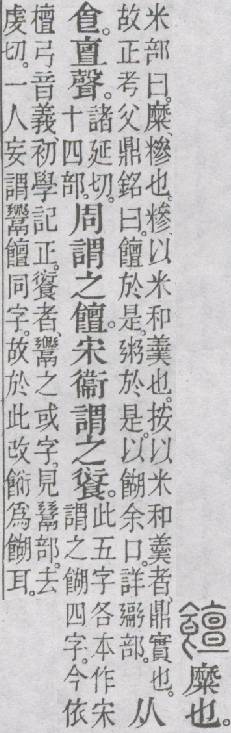 饘 糜也。
米部曰。糜、糝也。糝、以米和羹也。按以米和羹者、鼎實也。
故正考父鼎銘曰。饘於是。粥於是。以餬余口。詳䰜部。
从
食。亶聲。
諸延切。
十四部。
周謂之饘。宋衞謂之餰。
此五字各本作宋
謂之餬四字。今依
檀弓音義、初學記正。餰者、鬻之或字。見䰜部。去
虔切。一人妄謂鬻饘同字。故於此改餰爲餬耳。